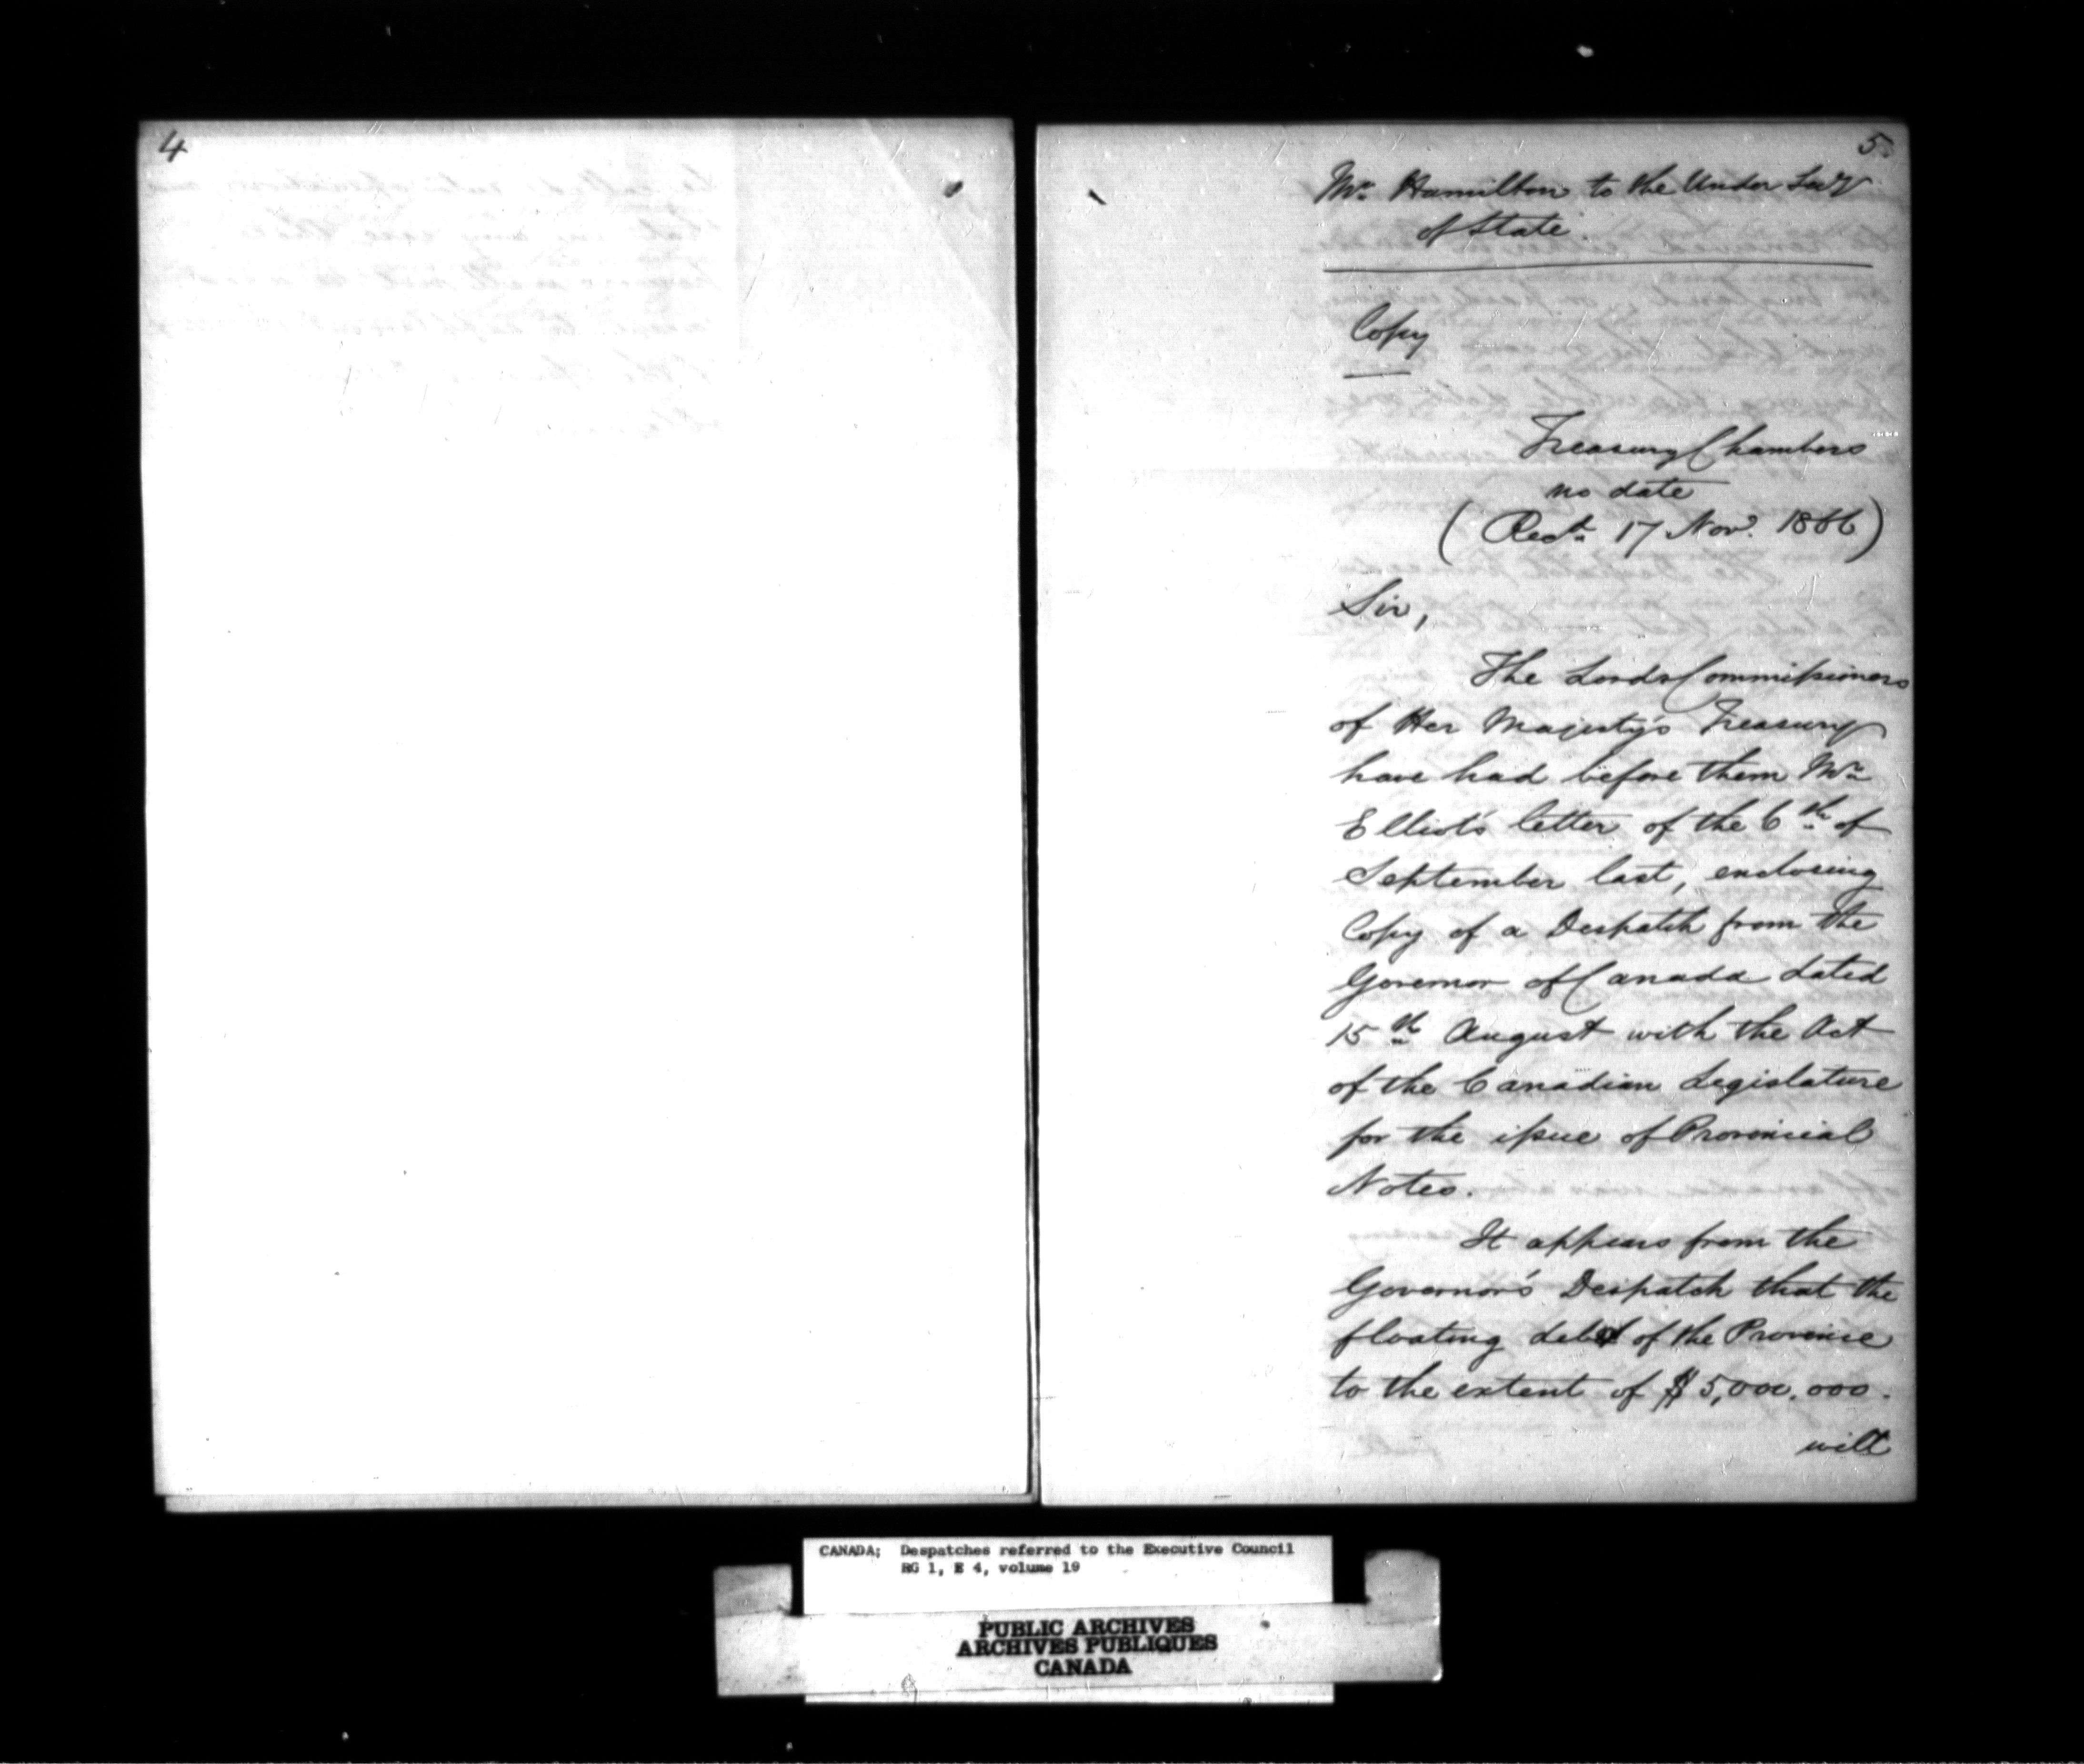 4
5
Mr. Hamilton to the Under Secy
of State.
Copy
Treasury Chambers
no date
(Recd. 17 Nov. 1866)
Sir,
The Lords Commissioners
of Her Majesty's Treasury
have had before them Mr.
Elliot's letter of the 6th of
September last, enclosing
Copy of a Despatch from the
Governor of Canada dated
15th August with the Act
of the Canadian Legislature
for the issue of Provincial
Notes.
It appears from the
Governor's Despatch that the
floating debt of the Province
to the extent of $5,000,000.
will
CANADA; Despatches referred to the Executive Council
RG 1, E 4, volume 19
PUBLIC ARCHIVES
ARCHIVES PUBLIQUES
CANADA